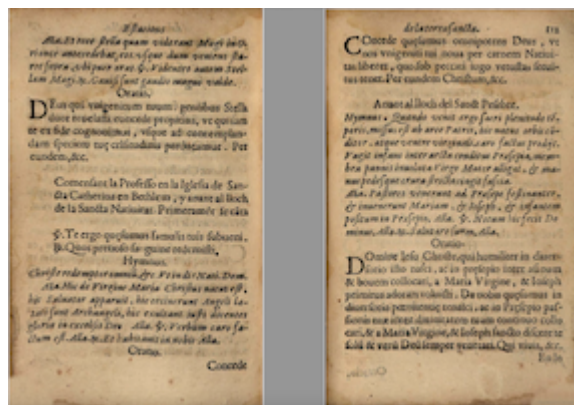 Estacions
Ana. Et ecce stella quam viderant Magi in O-
riente antecedebat eos, usque dum veniens sta-
ret supra, ubi puer erat. Videntes autem stel-
lam Magi, Gavisi sunt gaudio magno valde.
Oratio.
DEus qui unigenitum tuum gentibus Stella
duce revelasti: concede propitius, ut qui iam
te ex fide cognovimus, usque ad contemplan-
dam speciem tuæ celsitudinis perducamur. Per
eundem, &c.
Comensant la Professo en la Iglesia de San-
cta Catherina en Bethleem, y anant al lloch
de la Sancta Nativitat. Primeramēt se cāta
℣. Te ergo quæsumus famulis tuis subveni.
℟. Quos pretioso sanguine redemisti.
Hymnus.
Christe redemptor omnium, &c.
Ana. Hic de Virgine Maria Christus natus est,
hic Salvator apparuit, hic cecinerunt Angeli, læ-
tati sunt Archangeli, hic exultant iusti dicentes
gloria in excelsis Deo Alla. ℣. Verbum caro fa-
ctum est. Alla. ℟. Et habitavit in nobis Alla.
Oratio.
Concede
de la terra sancta.
COncede quæsumus omnipotens Deus, ut
nos unigeniti tui nova per carnem Nativi-
tas liberet, quos sub peccati iugo vetusta servi-
tus tenet. Per eundem Christum, &c.
Anant al lloch del Sanct Pesebre.
Hymnus. Quando venit ergo sacri plenitudo tē-
poris, missus est ab arce Patris, hic natus orbis cō-
ditor, atque ventre virginali, caro factus prodijt.
Vagit infans inter arcta conditus Præsepia, mem-
bra pannis involuta Virgo Mater alligat, & ma-
nus pedesque crura stricta cingit fascia.
Ana. Pastores venerunt ad Præsepe festinantes,
& invenerunt Mariam, & Ioseph, & infantem
positum in Præsepio, Alla. ℣. Notum hic fecit Do-
minus, Alla. ℟. Salutare suum, Alla.
Oratio.
DOmine Iesu Christe, qui humiliter in
hic nasci, ac in præsepio inter asinum
& bovem collocari, a Maria Virgine, & Ioseph
Da nobis quæsumus in
& a Maria Virgine, & Ioseph sancto
Deū semper venerari. Qui vivis, &c.